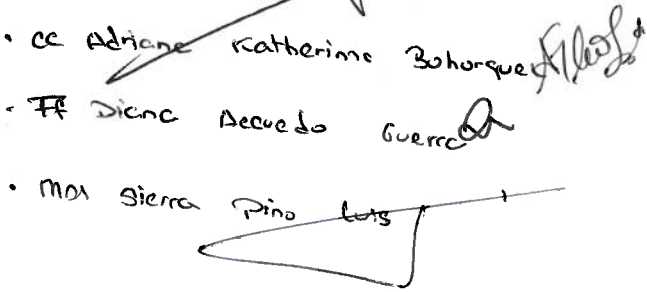 • CC Adriane Katherinne Bohorquez
• FF Diana Acevedo Guerra
• MAS Sierra Pino Luis